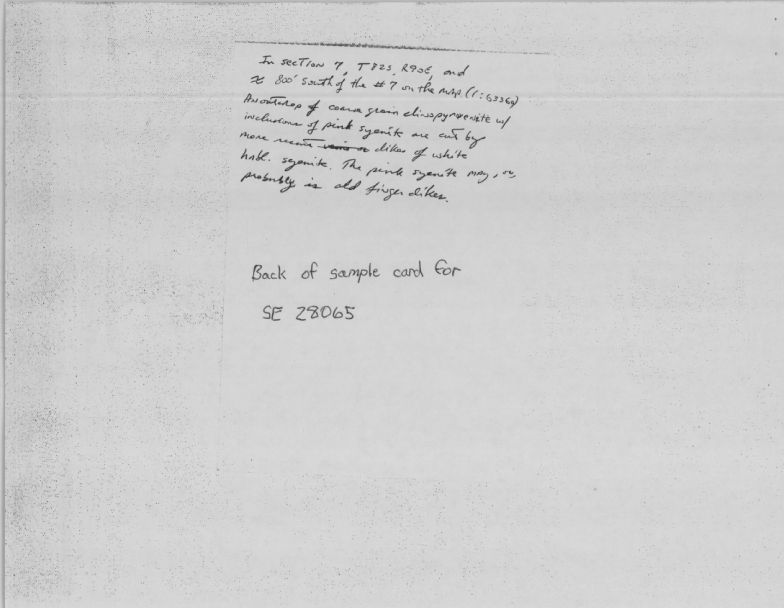 In section 7, T82S, R90E, and
≈ 800' South of the # 7 on the map (1:63360)
An outcrop of coarse grain clinopyroxenite w/
inclusions of pink syenite are cut by
more recent dikes of white
hnbl. syenite. The pink syenite may, or,
probably is old finger dikes.
Back of sample card for
SE 28065